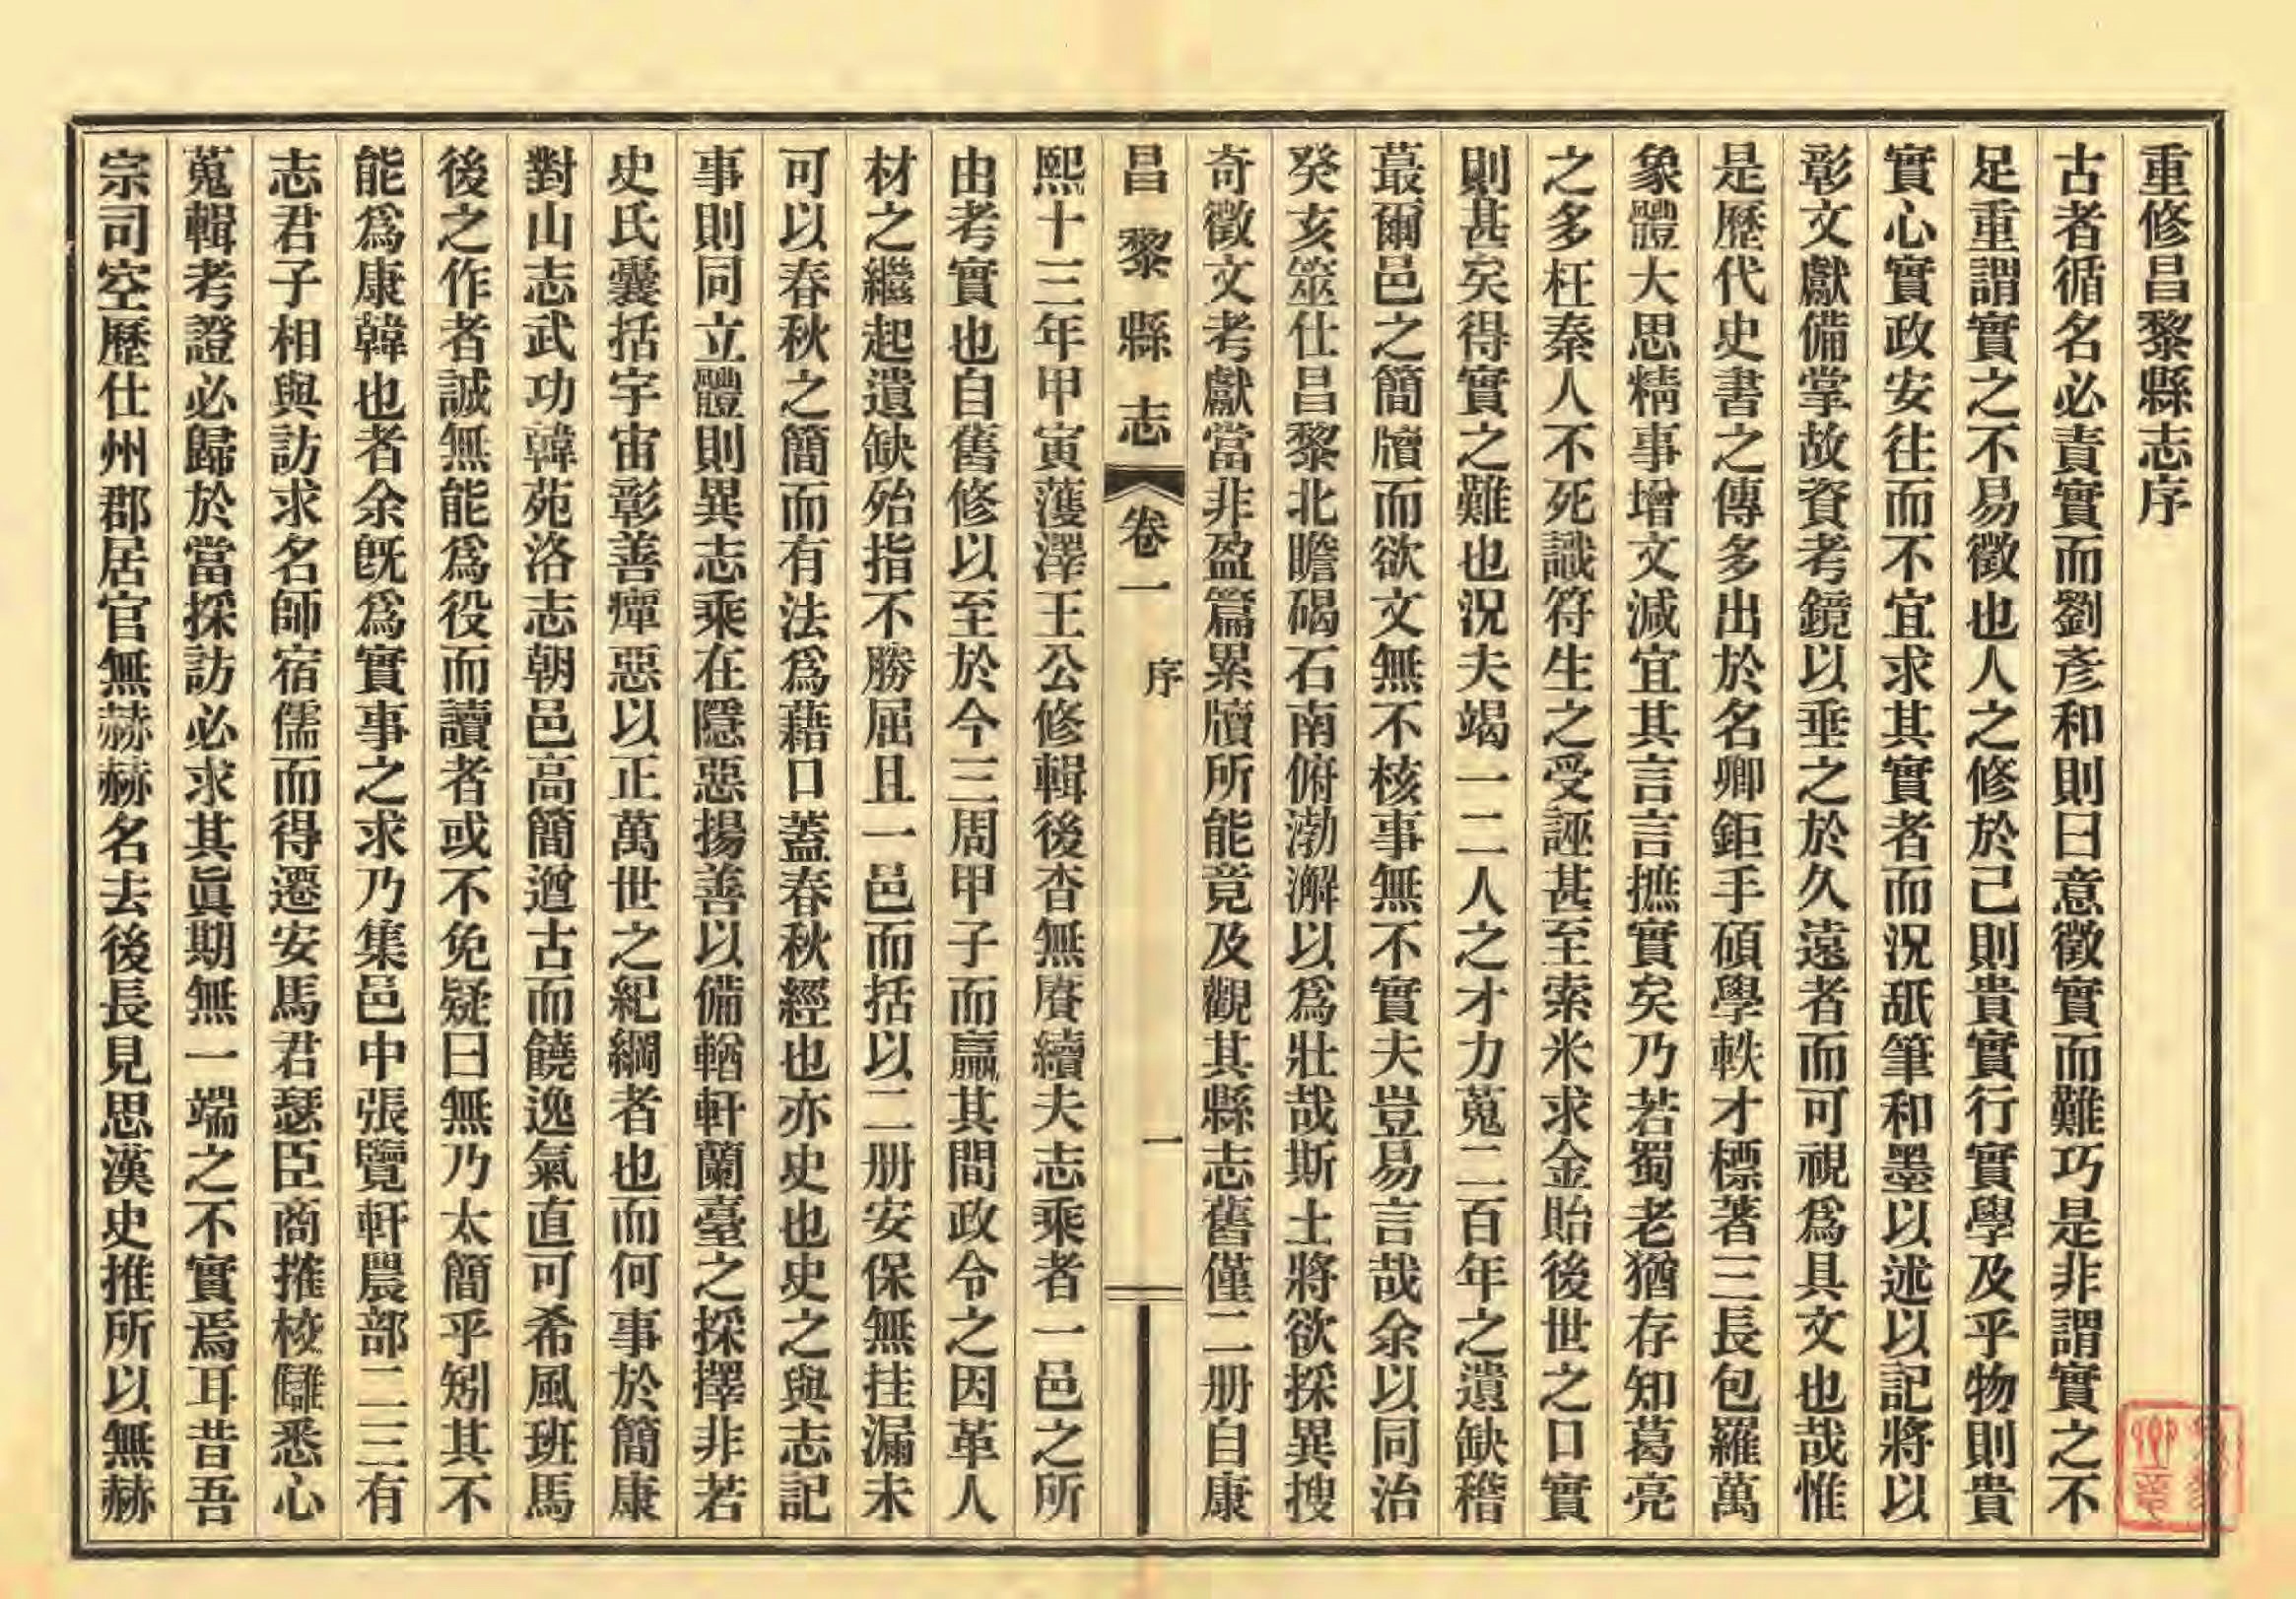 重修昌黎縣志序
古者循名必責實而劉彥和則曰意徵實而難巧是非謂實之不
足重謂實之不易徵也人之修於己則貴實行實學及乎物則貴
實心實政安往而不宜求其實者而況舐筆和墨以述以記將以
彰文獻備掌故資考鏡以垂之於久遠者而可視爲具文也哉惟
是歷代史書之傳多出於名卿鉅手碩學軼才標著三長包羅萬
象體大思精事增文減宜其言言摭實矣乃若蜀老猶存知葛亮
之多枉秦人不死識符生之受誣甚至索米求金貽後世之口實
則甚矣得實之難也況夫竭一二人之才力蒐二百年之遺缺稽
蕞爾邑之簡牘而欲文無不核事無不實夫豈易言哉余以同治
癸亥筮仕昌黎北瞻碣石南俯渤澥以爲壯哉斯土將欲採異搜
奇徵文考獻當非盈篇累牘所能竟及觀其縣志舊僅二册自康
昌黎縣志 卷一 序 一
熙十三年甲寅蒦澤王公修輯後杳無賡續夫志乘者一邑之所
由考實也自舊修以至於今三周甲子而贏其間政令之因革人
材之繼起遺缺殆指不勝屈且一邑而括以二册安保無挂漏未
可以春秋之簡而有法爲藉口蓋春秋經也亦史也史之與志記
事則同立體則異志乘在隱惡揚善以備輶軒蘭臺之採擇非若
史氏囊括宇宙彰善癉惡以正萬世之紀綱者也而何事於簡康
對山志武功韓苑洛志朝邑高簡遒古而饒逸氣直可希風班馬
後之作者誠無能爲役而讀者或不免疑曰無乃太簡乎矧其不
能爲康韓也者余旣爲實事之求乃集邑中張覽軒農部二三有
志君子相與訪求名師宿儒而得遷安馬君瑟臣商搉校讎悉心
蒐輯考證必歸於當採訪必求其眞期無一端之不實焉耳昔吾
宗司空歷仕州郡居官無赫赫名去後長見思漢史推所以無赫